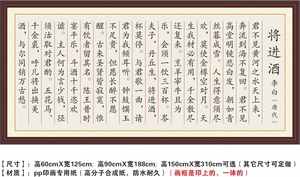 将进酒
李白（唐代）
君不见黄河之水天上来，
奔流到海不复回。君不见
高堂明镜悲白发，朝如青
丝暮成雪。人生得意须尽
欢，莫使金樽空对月。天
生我材必有用，千金散尽
还复来。烹羊宰牛且为
乐，会须一饮三百杯。岑
夫子，丹丘生，将进酒，
杯莫停。与君歌一曲，请
君为我倾耳听。钟鼓馔玉
不足贵，但愿长醉不愿
醒。古来圣贤皆寂寞，惟
有饮者留其名。陈王昔时
宴平乐，斗酒十千恣欢
谑。主人何为言少钱，径
须沽取对君酌。五花马，
千金裘，呼儿将出换美
酒，与尔同销万古愁。
【尺寸】：高60cmX宽125cm; 高90cmX宽188cm; 高150cmX宽310cm可选（其它尺寸可定做）
【材质】：pp印画专用纸（高分子合成纸，防水耐久）（画框是印上的，一体的）